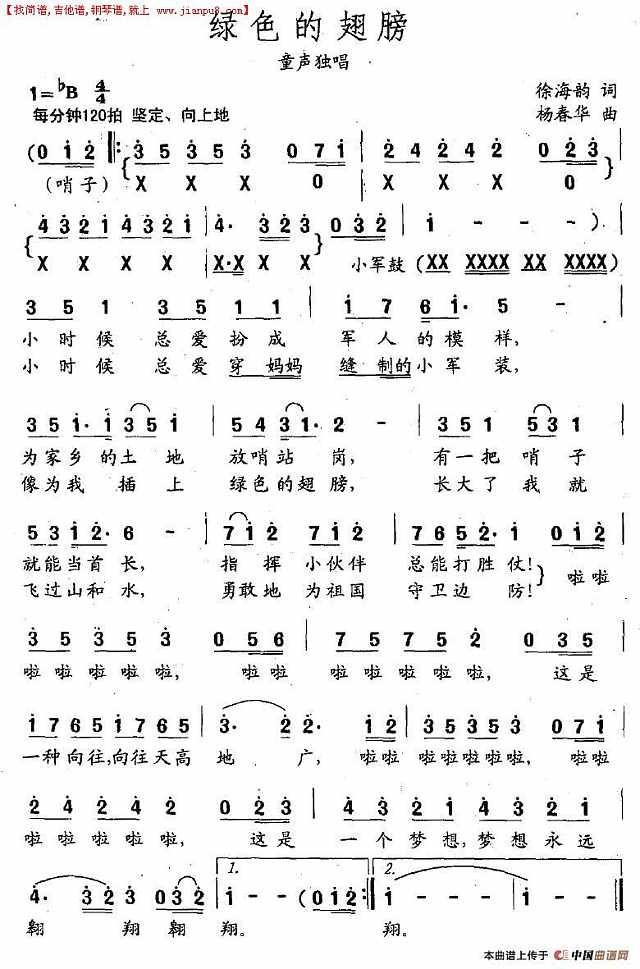 【找简谱,吉他谱,钢琴谱,就上 www.jianpu8.com】
绿色的翅膀
童声独唱
1=♭B 4/4
徐海韵 词
每分钟120拍 坚定、向上地
杨春华 曲
(0 1 2 ‖: 3 5 3 5 3 0 7 1 | 2 4 2 4 2 0 2 3
(哨子) X X X O X X X O
4 3 2 1 4 3 2 1 | 1· 3 2 3 0 3 2 | 1 - - - )
X X X X X·X X X 小军鼓 (XX XXXX XX XXXX)
3 5 1 3 5 1 1 | 1 7 6 1· 5 - |
小时候 总爱扮成 军人的模样,
小时候 总爱穿妈妈 缝制的小军装,
3 5 1· 1 3 5 1 | 5 4 3 1· 2 - | 3 5 1 5 1 2
为家乡的土地 放哨站岗, 有一把哨子
像为我插上 绿色的翅膀, 长大了我就
5 3 1 2· 6 - | 7 1 2 3 1 2 | 7 6 5 2· 0 1 2
就能当首长, 指挥小伙伴 总能打胜仗! 啦啦
飞过山和水, 勇敢地为祖国 守卫边防!
3 5 3 5 3 0 5 6 | 7 5 7 5 2 0 3 5
啦啦啦啦啦, 啦啦啦啦啦啦啦, 这是
1 7 6 5 1 7 6 5 | 3· 2 2· 1 2 | 3 5 3 5 3 0 7 1
一种向往,向往天高地广, 啦啦啦啦啦啦啦, 啦啦
2 4 2 4 2 0 2 3 | 4 3 2 1 4 3 2 1
啦啦啦啦啦, 这是一个梦想,梦想永远
4· 3 2 3 3 2 | 1. 1 - - (0 1 2 :‖ 2. 1 - - - ‖
翱翔翱翔。 翔。
本曲谱上传于 中国曲谱网